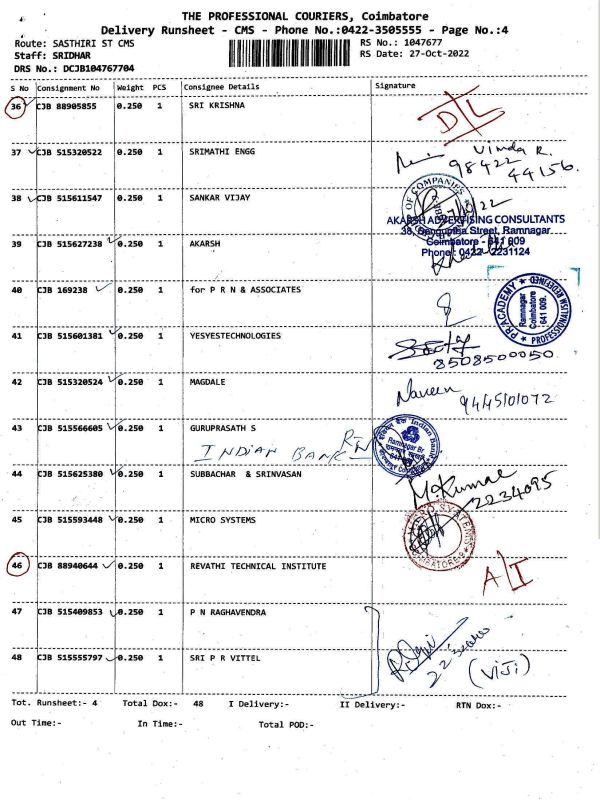 THE PROFESSIONAL COURIERS, Coimbatore
Delivery Runsheet - CMS - Phone No.:0422-3505555 - Page No.:4
Route: SASTHIRI ST CMS
RS No.: 1047677
Staff: SRIDHAR
RS Date: 27-Oct-2022
DRS No.: DCJB104767704
S No Consignment No Weight PCS Consignee Details Signature
36 CJB 88905855 0.250 1 SRI KRISHNA
D/L
37 CJB 515320522 0.250 1 SRIMATHI ENGG
Vimda R.
98422
44156.
38 CJB 515611547 0.250 1 SANKAR VIJAY
OF COMPANIES
AKARSH ADVERTISING CONSULTANTS
Street, Ramnagar
39 CJB 515627238 0.250 1 AKARSH
Coimbatore - 641 009
Phone: 0422 - 2231124
40 CJB 169238 0.250 1 for P R N & ASSOCIATES
PRACADEMY
Ramnagar
Coimbatore
641 009.
41 CJB 515601381 0.250 1 YESYESTECHNOLOGIES
8508500050
42 CJB 515320524 0.250 1 MAGDALE
Naveen
9445101072
43 CJB 515566605 0.250 1 GURUPRASATH S
INDIAN BANK
Indian Bank
Ramnagar Br.
44 CJB 515625380 0.250 1 SUBBACHAR & SRINVASAN
M.Kumar
2234095
45 CJB 515593448 0.250 1 MICRO SYSTEMS
MICRO SYSTEMS
46 CJB 88940644 0.250 1 REVATHI TECHNICAL INSTITUTE
A/I
47 CJB 515409853 0.250 1 P N RAGHAVENDRA
48 CJB 515555797 0.250 1 SRI P R VITTEL
(VIJI)
Tot. Runsheet:- 4 Total Dox:- 48 I Delivery:- II Delivery:- RTN Dox:-
Out Time:- In Time:- Total POD:-